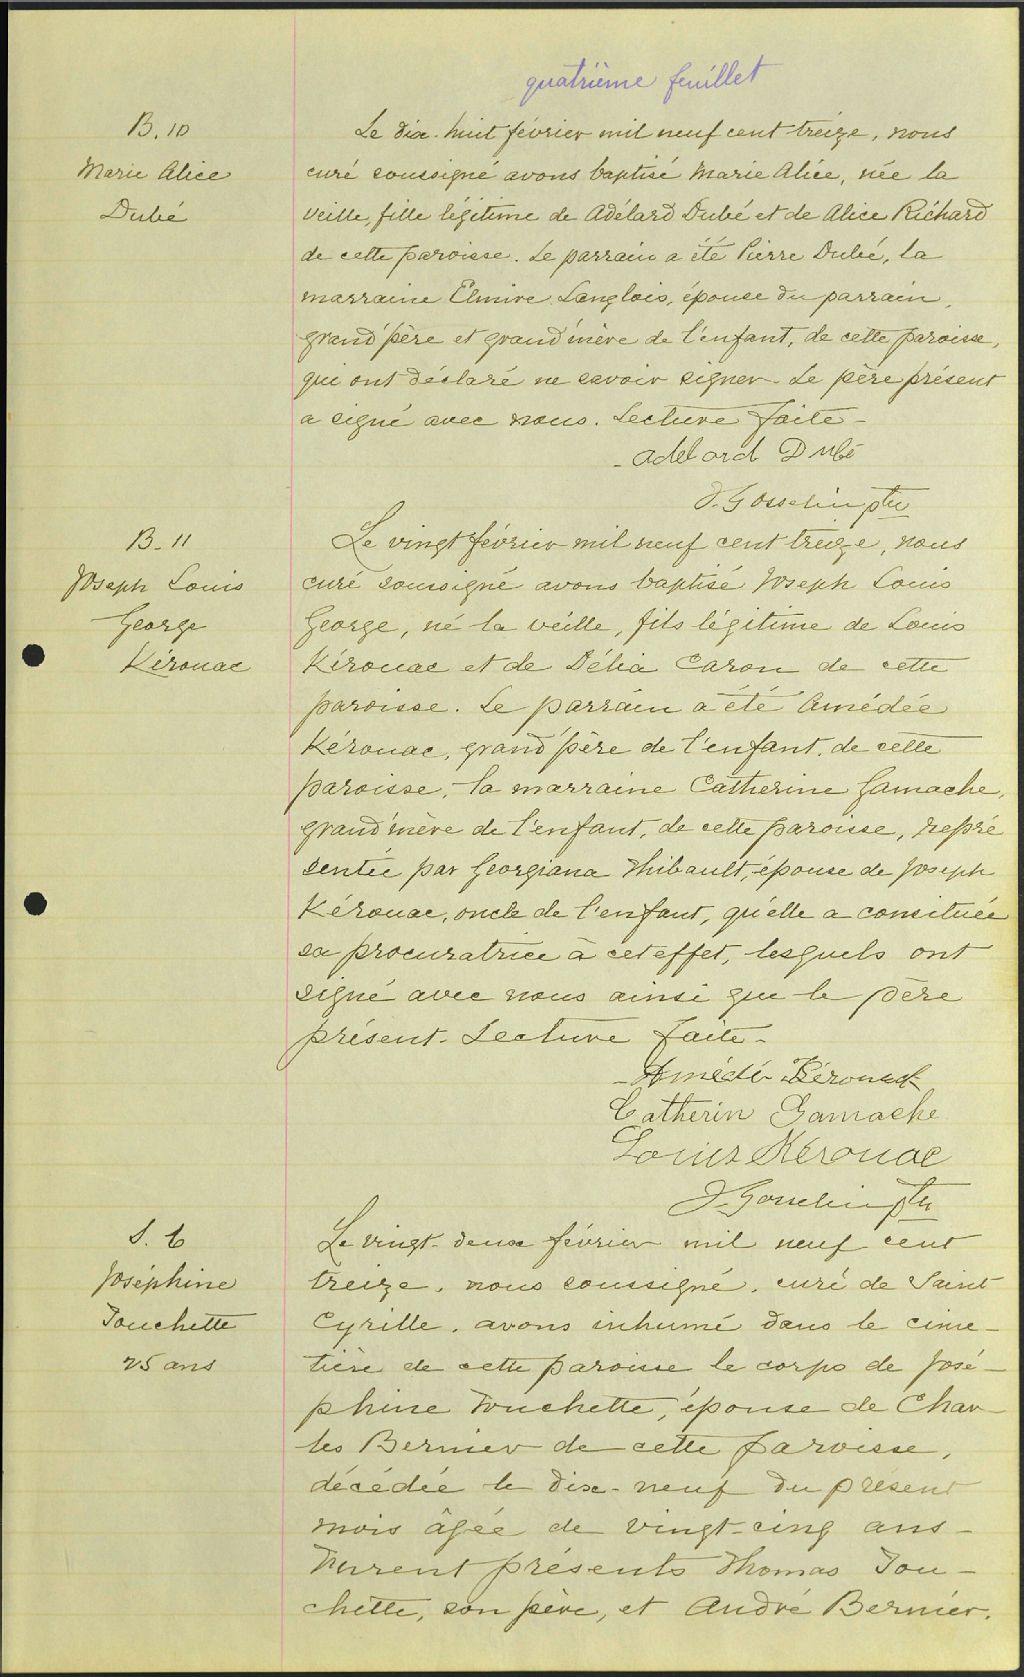 quatrième feuillet
B. 10
Marie Alice
Dubé
Le dix-huit février mil neuf cent treize, nous
curé soussigné avons baptisé Marie Alice, née la
veille, fille légitime de Adélard Dubé et de Alice Richard
de cette paroisse. Le parrain a été Pierre Dubé, la
marraine Elmire Langlois, épouse du parrain,
grand'père et grand'mère de l'enfant, de cette paroisse,
qui ont déclaré ne savoir signer. Le père présent
a signé avec nous. Lecture faite -
Adelard Dubé
J. Gosselin ptre
B. 11
Joseph Louis
George
Kérouac
Le vingt février mil neuf cent treize, nous
curé soussigné avons baptisé Joseph Louis
George, né la veille, fils légitime de Louis
Kérouac et de Délia Caron de cette
paroisse. Le parrain a été Amédée
Kérouac, grand'père de l'enfant, de cette
paroisse, la marraine Catherine Gamache,
grand'mère de l'enfant, de cette paroisse, repré
sentée par Georgiana Thibault, épouse de Joseph
Kérouac, oncle de l'enfant, qu'elle a consituée
sa procuratrice à cet effet, lesquels ont
signé avec nous ainsi que le père
présent. Lecture faite -
Amédé Kérouack
Catherin Gamache
Louis Kérouac
J. Gosselin ptr
S. 6
Joséphine
Touchette
25 ans
Le vingt-deux février mil neuf cent
treize, nous soussigné, curé de Saint
Cyrille, avons inhumé dans le cime-
tière de cette paroisse le corps de José-
phine Touchette, épouse de Char-
les Bernier de cette paroisse,
décédée le dix-neuf du présent
mois âgée de vingt-cinq ans -
Furent présents Thomas Tou-
chette, son père, et André Bernier.